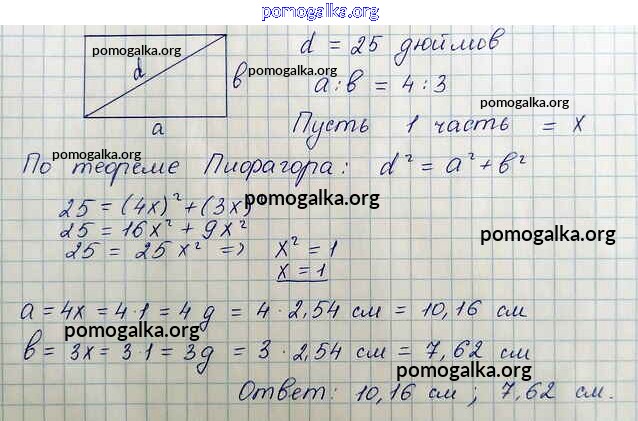 pomogalka.org
d = 25 дюймов
pomogalka.org
d
в pomogalka.org
а : в = 4 : 3
pomogalka.org
а
Пусть 1 часть = x
pomogalka.org
По теореме Пифагора: d² = a² + в²
25 = (4x)² + (3x)
pomogalka.org
25 = 16x² + 9x²
pomogalka.org
25 = 25x² => x² = 1
x = 1
а = 4x = 4·1 = 4д = 4 · 2,54 см = 10,16 см
pomogalka.org
в = 3x = 3·1 = 3д = 3 · 2,54 см = 7,62 см
pomogalka.org
Ответ: 10,16 см ; 7,62 см.